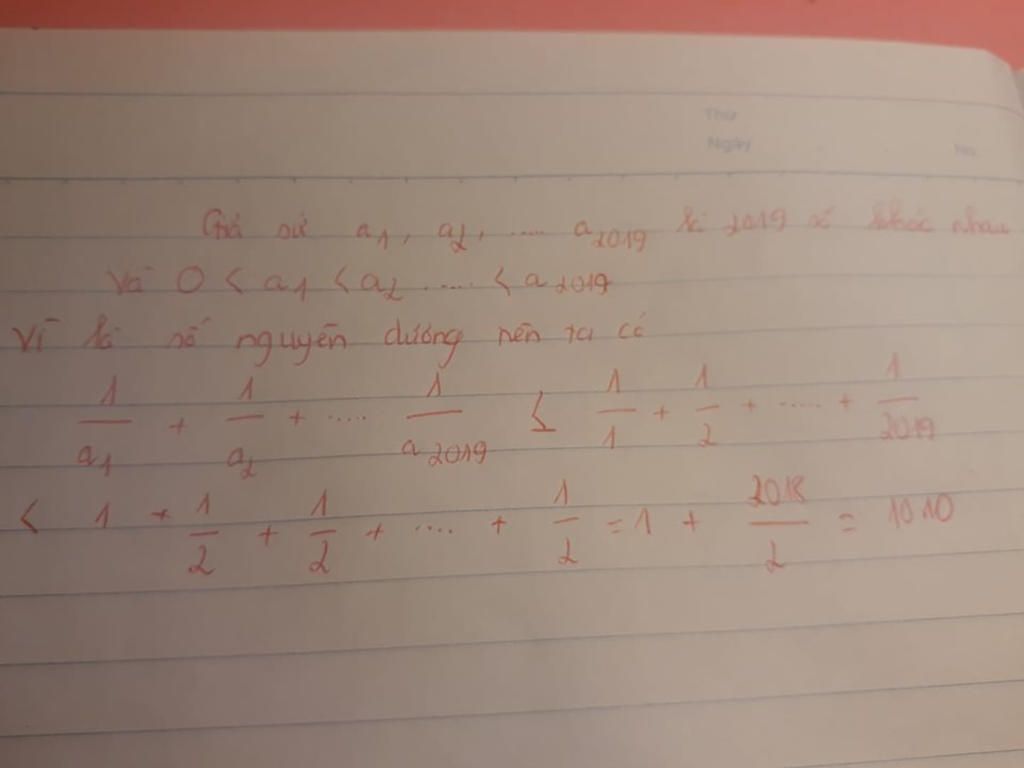 Thứ
Ngày
No.
Giả sử a1, a2, ..... a2019 là 2019 số khác nhau
Và 0 < a1 < a2 ..... < a2019
Vì là số nguyên dương nên ta có
1/a1 + 1/a2 + ..... 1/a2019 ≤ 1/1 + 1/2 + ..... + 1/2019
< 1 + 1/2 + 1/2 + .... + 1/2 = 1 + 2018/2 = 1010